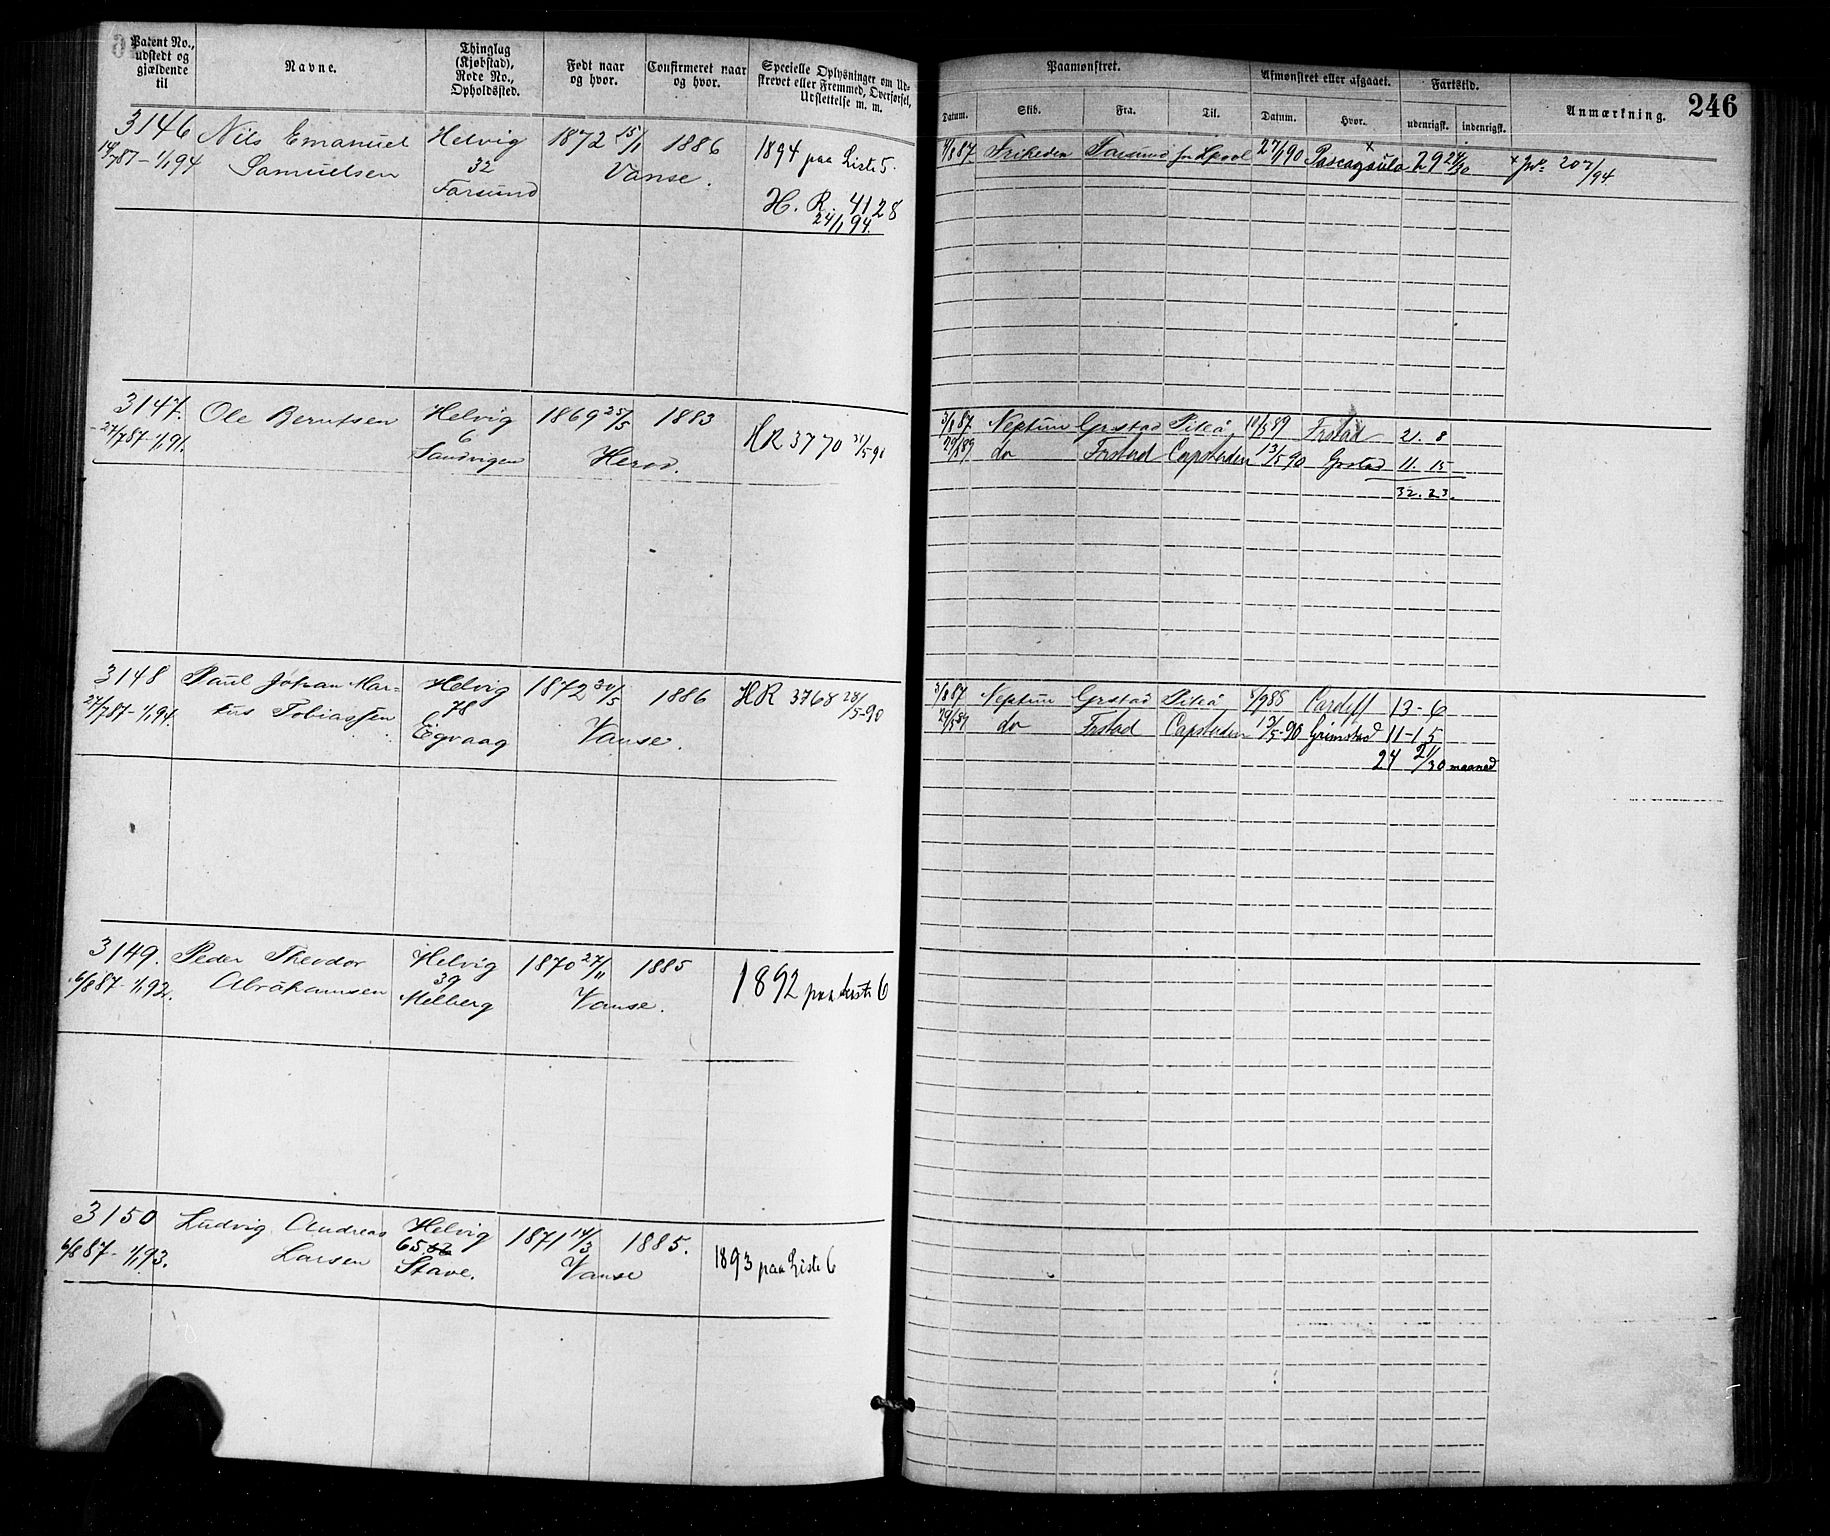 Patent No., udstedt og gjældende til
Navne.
Thinglag (Kjøbstad), Rode No., Opholdssted.
Født naar og hvor.
Confirmeret naar og hvor.
Specielle Oplysninger om Udskrevet eller Fremmed, Overførsel, Udslettelse m. m.
Paamønstret.
Datum.
Skib.
Fra.
Til.
Afmønstret eller afgaaet.
Datum.
Hvor.
Fartstid.
udenrigsk.
indenrigsk.
Anmærkning.
246
3146 Nils Emanuel Helvig 1872 15/1 1886 1894 paa Liste 5.
14/7 87 - 1/1 94 Samuelsen 32 Vanse.
Farsund H. R. 4128
24/1 94.
4/8 87 Friheden Farsund for Lpool 27/1 90 Pascagoula 29 24/30 20 7/94
3147. Ole Berntsen Helvig 1869 25/5 1883 HR 3770 21/5 90
27/7 87 - 1/1 91. 6
Sandvigen Herod.
3/8 87 Neptun Grstad Piteå 11/5 89 Frstad 21. 8
29/5 89 do Frstad Capstaden 13/5 90 Grstad 11. 15
32. 23.
3148 Paul Johan Mar- Helvig 1872 30/5 1886 HR 3768 28/5-90
27/7 87 - 1/1 94. kus Tobiassen 78 Vanse.
Eigvaag
3/8 87 Neptun Grstad Piteå 8/9 88 Cardiff 13-6
29/5 89 do Frstad Capstaden 13/5-90 Grimstad 11-15
24 21/30 maaned
3149. Peder Theodor Helvig 1870 27/11 1885 1892 paa Liste 6
6/8 87 - 1/1 92. Abrahamsen 39 Vanse.
Melberg
3150 Ludvig Andreas Helvig 1871 14/3 1885. 1893 paa Liste 6
6/8 87 - 1/1 93. Larsen 65 Vanse
Stave.